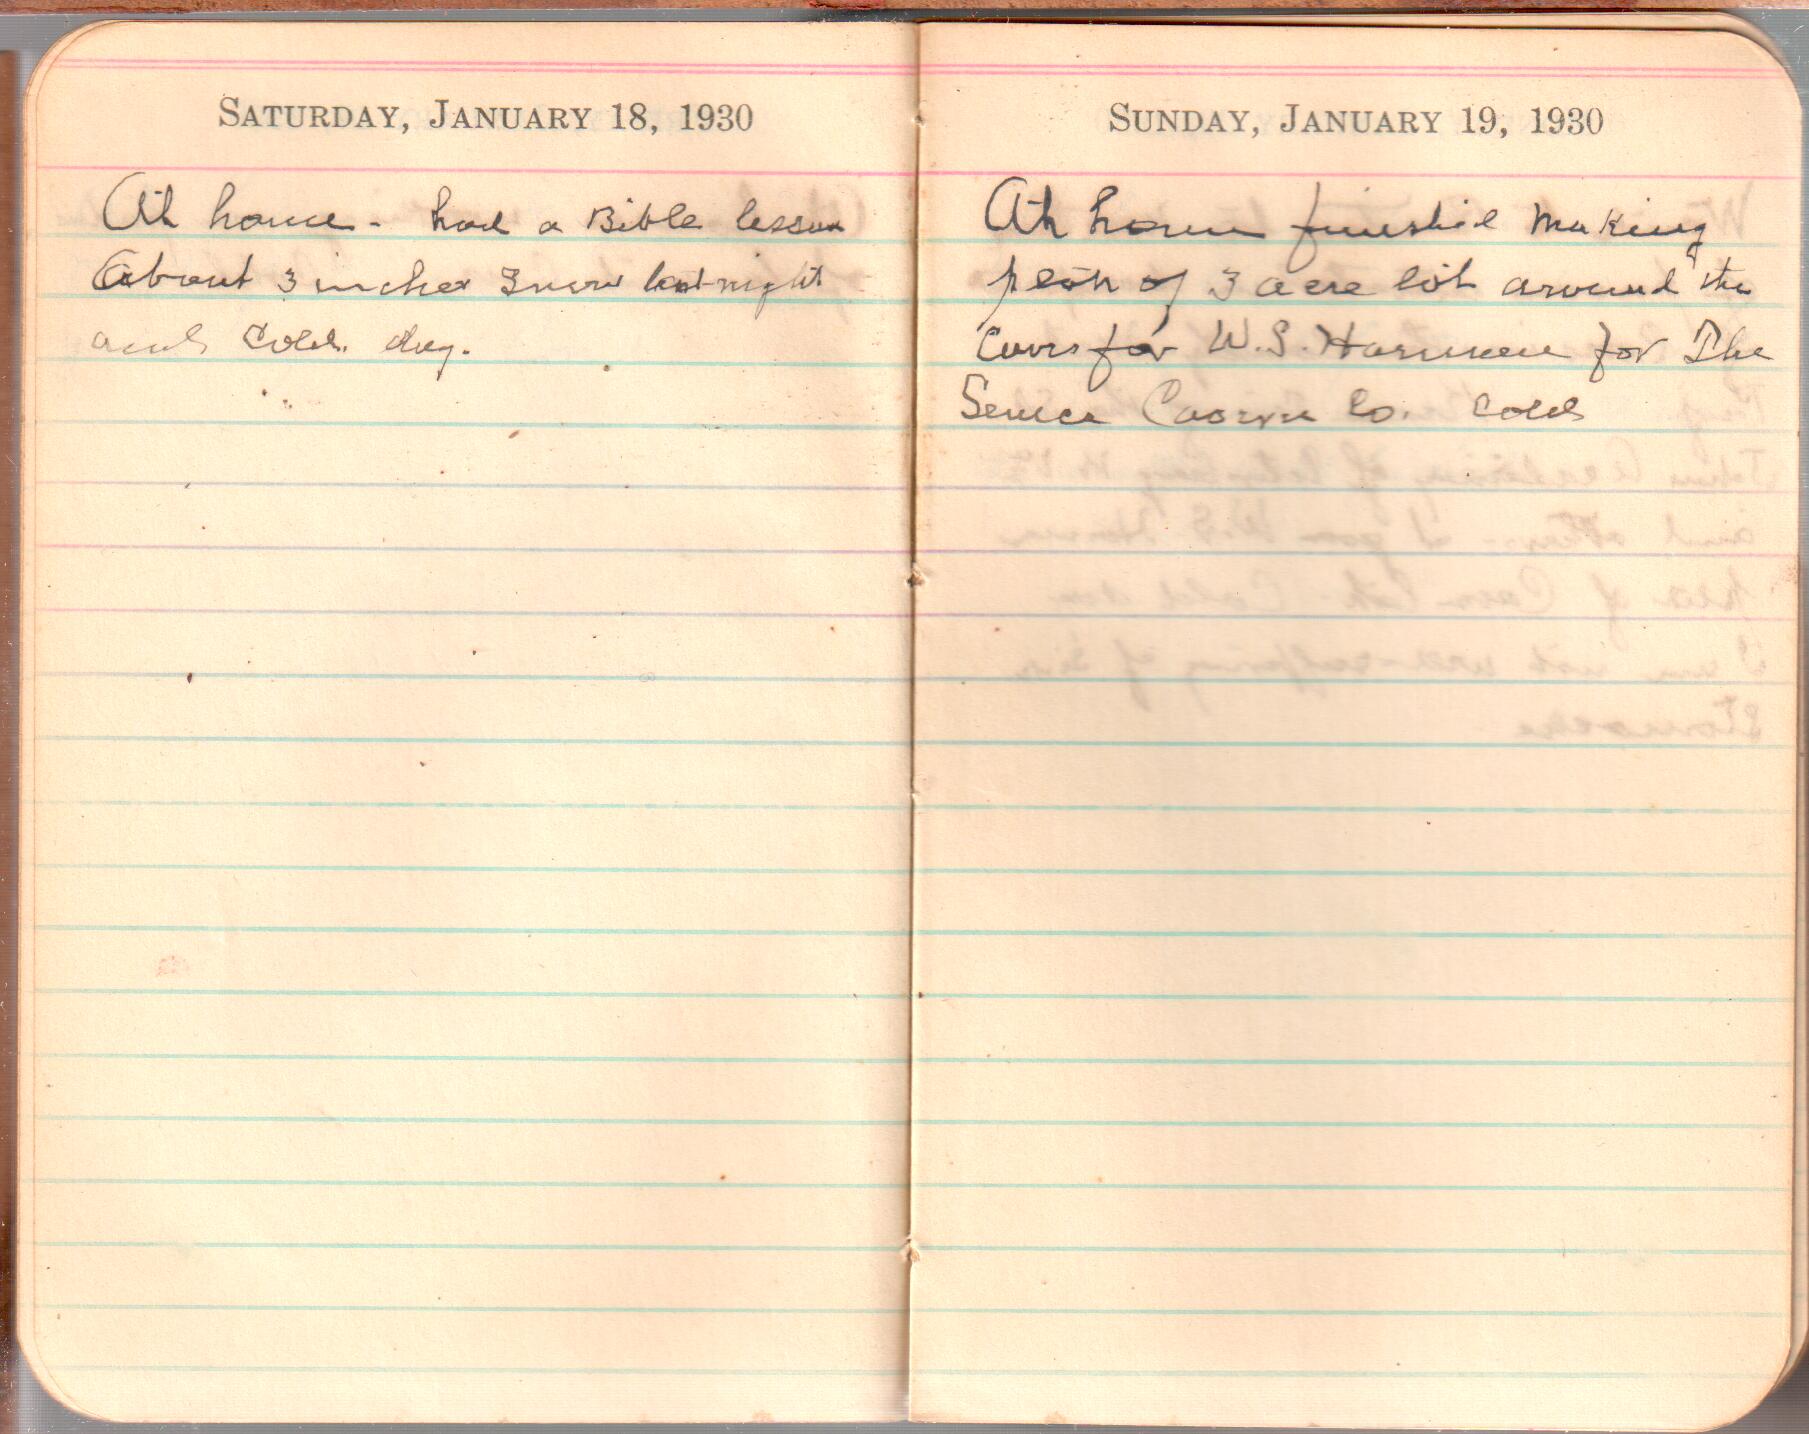 SATURDAY, JANUARY 18, 1930
At home - had a Bible lesson
About 3 inches Snow last night
and Cold day.
SUNDAY, JANUARY 19, 1930
At home finished making
plat of 3 acre lot around the
Cave for W.S. Harman for The
Seneca Cavern Co. Cold